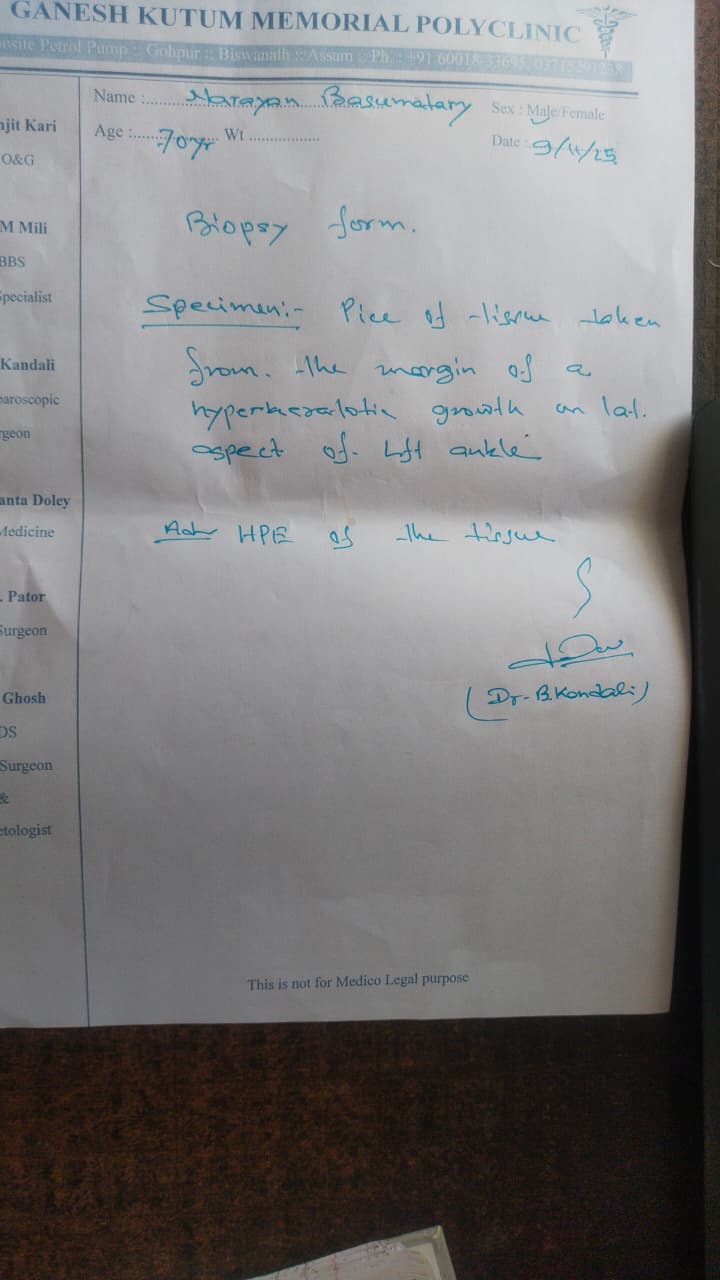 GANESH KUTUM MEMORIAL POLYCLINIC
Petrol Pump :: Gohpur :: Biswanath :: Assam :: Ph. : +91 60018
Name : Narayan Basumatary Sex : Male/Female
Age : 70yr Wt Date : 9/4/25
njit Kari
O&G
M Mili
BBS
Specialist
Kandali
paroscopic
rgeon
anta Doley
Medicine
. Pator
Surgeon
Ghosh
DS
Surgeon
&
etologist
Biopsy form.
Specimen:- Pice of tissue taken
from. the margin of a
hyperkeratotic growth on lat.
aspect of Left ankle
Adv HPE of the tissue
(Dr. B. Kondali)
This is not for Medico Legal purpose